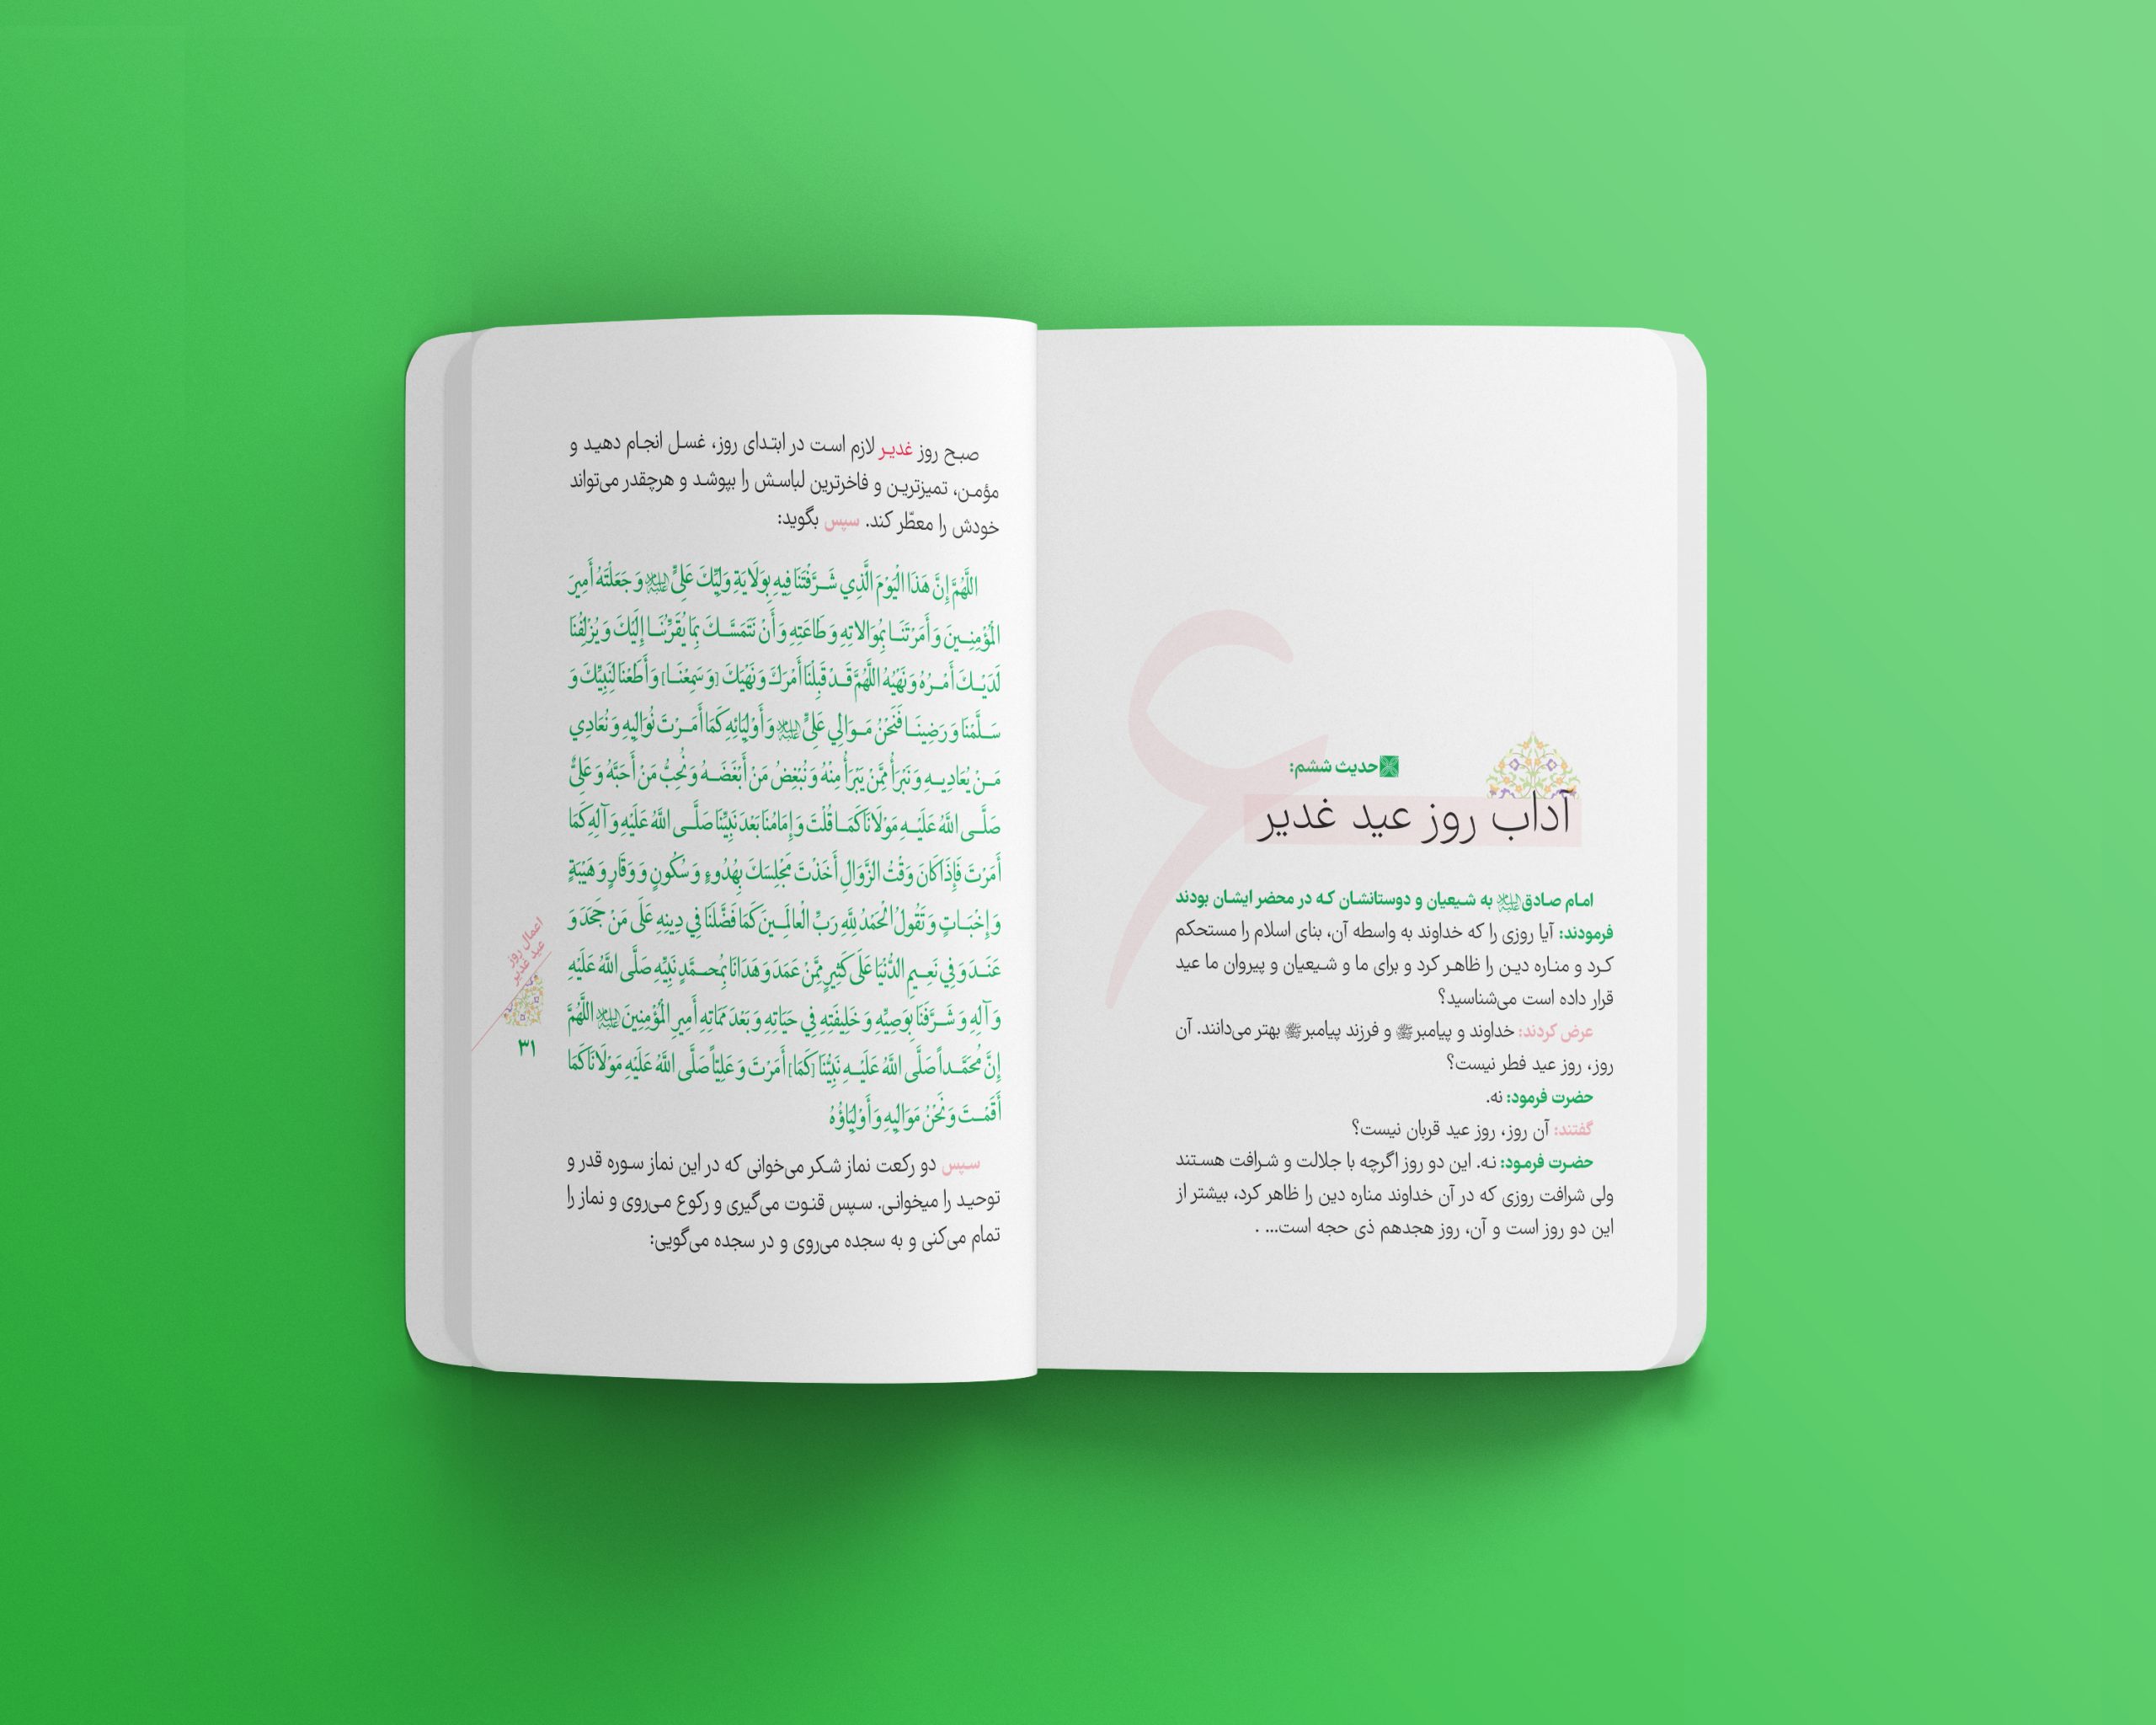 ۶
حدیث ششم:
آداب روز عید غدیر
امام صادق علیه‌السلام به شیعیان و دوستانشان که در محضر ایشان بودند
فرمودند: آیا روزی را که خداوند به واسطه آن، بنای اسلام را مستحکم
کرد و مناره دین را ظاهر کرد و برای ما و شیعیان و پیروان ما عید
قرار داده است می‌شناسید؟
عرض کردند: خداوند و پیامبرﷺ و فرزند پیامبرﷺ بهتر می‌دانند. آن
روز، روز عید فطر نیست؟
حضرت فرمود: نه.
گفتند: آن روز، روز عید قربان نیست؟
حضرت فرمود: نه. این دو روز اگرچه با جلالت و شرافت هستند
ولی شرافت روزی که در آن خداوند مناره دین را ظاهر کرد، بیشتر از
این دو روز است و آن، روز هجدهم ذی حجه است... .
صبح روز غدیر لازم است در ابتدای روز، غسل انجام دهید و
مؤمن، تمیزترین و فاخرترین لباسش را بپوشد و هرچقدر می‌تواند
خودش را معطّر کند. سپس بگوید:
اللَّهُمَّ إِنَّ هَذَا الْيَوْمَ الَّذِي شَرَّفْتَنَا فِيهِ بِوَلَايَةِ وَلِيِّكَ عَلِيٍّ علیه‌السلام وَ جَعَلْتَهُ أَمِيرَ
الْمُؤْمِنِينَ وَ أَمَرْتَنَا بِمُوَالاتِهِ وَ طَاعَتِهِ وَ أَنْ نَتَمَسَّكَ بِمَا يُقَرِّبُنَا إِلَيْكَ وَ يُزْلِفُنَا
لَدَيْكَ أَمْرُهُ وَ نَهْيُهُ اللَّهُمَّ قَدْ قَبِلْنَا أَمْرَكَ وَ نَهْيَكَ [وَ سَمِعْنَا] وَ أَطَعْنَا لِنَبِيِّكَ وَ
سَلَّمْنَا وَ رَضِينَا فَنَحْنُ مَوَالِي عَلِيٍّ علیه‌السلام وَ أَوْلِيَائِهِ كَمَا أَمَرْتَ نُوَالِيهِ وَ نُعَادِي
مَنْ يُعَادِيهِ وَ نَبْرَأُ مِمَّنْ يَبْرَأُ مِنْهُ وَ نُبْغِضُ مَنْ أَبْغَضَهُ وَ نُحِبُّ مَنْ أَحَبَّهُ وَ عَلِيٌّ
صَلَّى اللَّهُ عَلَيْهِ مَوْلَانَا كَمَا قُلْتَ وَ إِمَامُنَا بَعْدَ نَبِيِّنَا صَلَّى اللَّهُ عَلَيْهِ وَ آلِهِ كَمَا
أَمَرْتَ فَإِذَا كَانَ وَقْتُ الزَّوَالِ أَخَذْتَ مَجْلِسَكَ بِهُدُوءٍ وَ سُكُونٍ وَ وَقَارٍ وَ هَيْبَةٍ
وَ إِخْبَاتٍ وَ تَقُولُ الْحَمْدُ لِلَّهِ رَبِّ الْعَالَمِينَ كَمَا فَضَّلَنَا فِي دِينِهِ عَلَى مَنْ جَحَدَ وَ
عَنَدَ وَ فِي نَعِيمِ الدُّنْيَا عَلَى كَثِيرٍ مِمَّنْ عَمَدَ وَ هَدَانَا بِمُحَمَّدٍ نَبِيِّهِ صَلَّى اللَّهُ عَلَيْهِ
وَ آلِهِ وَ شَرَّفَنَا بِوَصِيِّهِ وَ خَلِيفَتِهِ فِي حَيَاتِهِ وَ بَعْدَ مَمَاتِهِ أَمِيرِ الْمُؤْمِنِينَ علیه‌السلام اللَّهُمَّ
إِنَّ مُحَمَّداً صَلَّى اللَّهُ عَلَيْهِ نَبِيُّنَا [كَمَا] أَمَرْتَ وَ عَلِيّاً صَلَّى اللَّهُ عَلَيْهِ مَوْلَانَا كَمَا
أَقَمْتَ وَ نَحْنُ مَوَالِيهِ وَ أَوْلِيَاؤُهُ
سپس دو رکعت نماز شکر می‌خوانی که در این نماز سوره قدر و
توحید را میخوانی. سپس قنوت می‌گیری و رکوع می‌روی و نماز را
تمام می‌کنی و به سجده می‌روی و در سجده می‌گویی:
اعمال روز
عید غدیر
۳۱